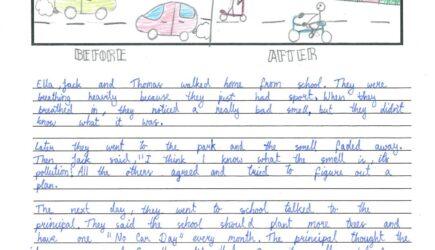 BEFORE AFTER
Ella, Jack and Thomas walked home from school. They were
breathing heavily because they just had sport. When they
breathed in, they noticed a really bad smell, but they didn't
know what it was.
Later they went to the park and the smell faded away.
Then Jack said, "I think I know what the smell is, its
pollution". All the others agreed and tried to figure out a
plan.
The next day, they went to school talked to the
principal. They said the school should plant more trees and
have one "No Car Day" every month. The principal thought the